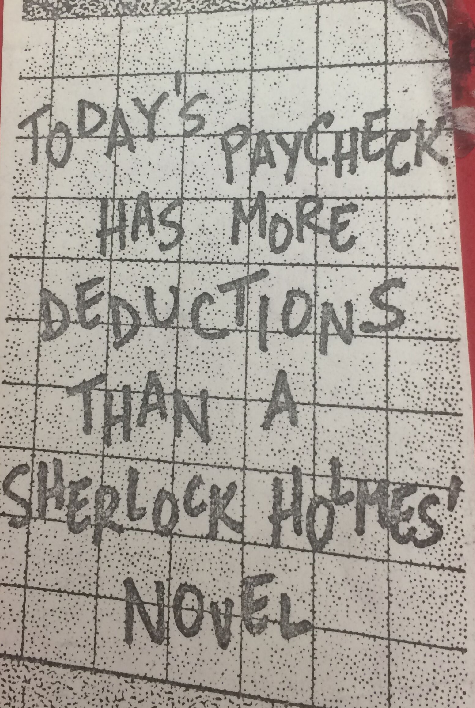 TODAY'S PAYCHECK
HAS MORE
DEDUCTIONS
THAN A
SHERLOCK HOLMES'
NOVEL